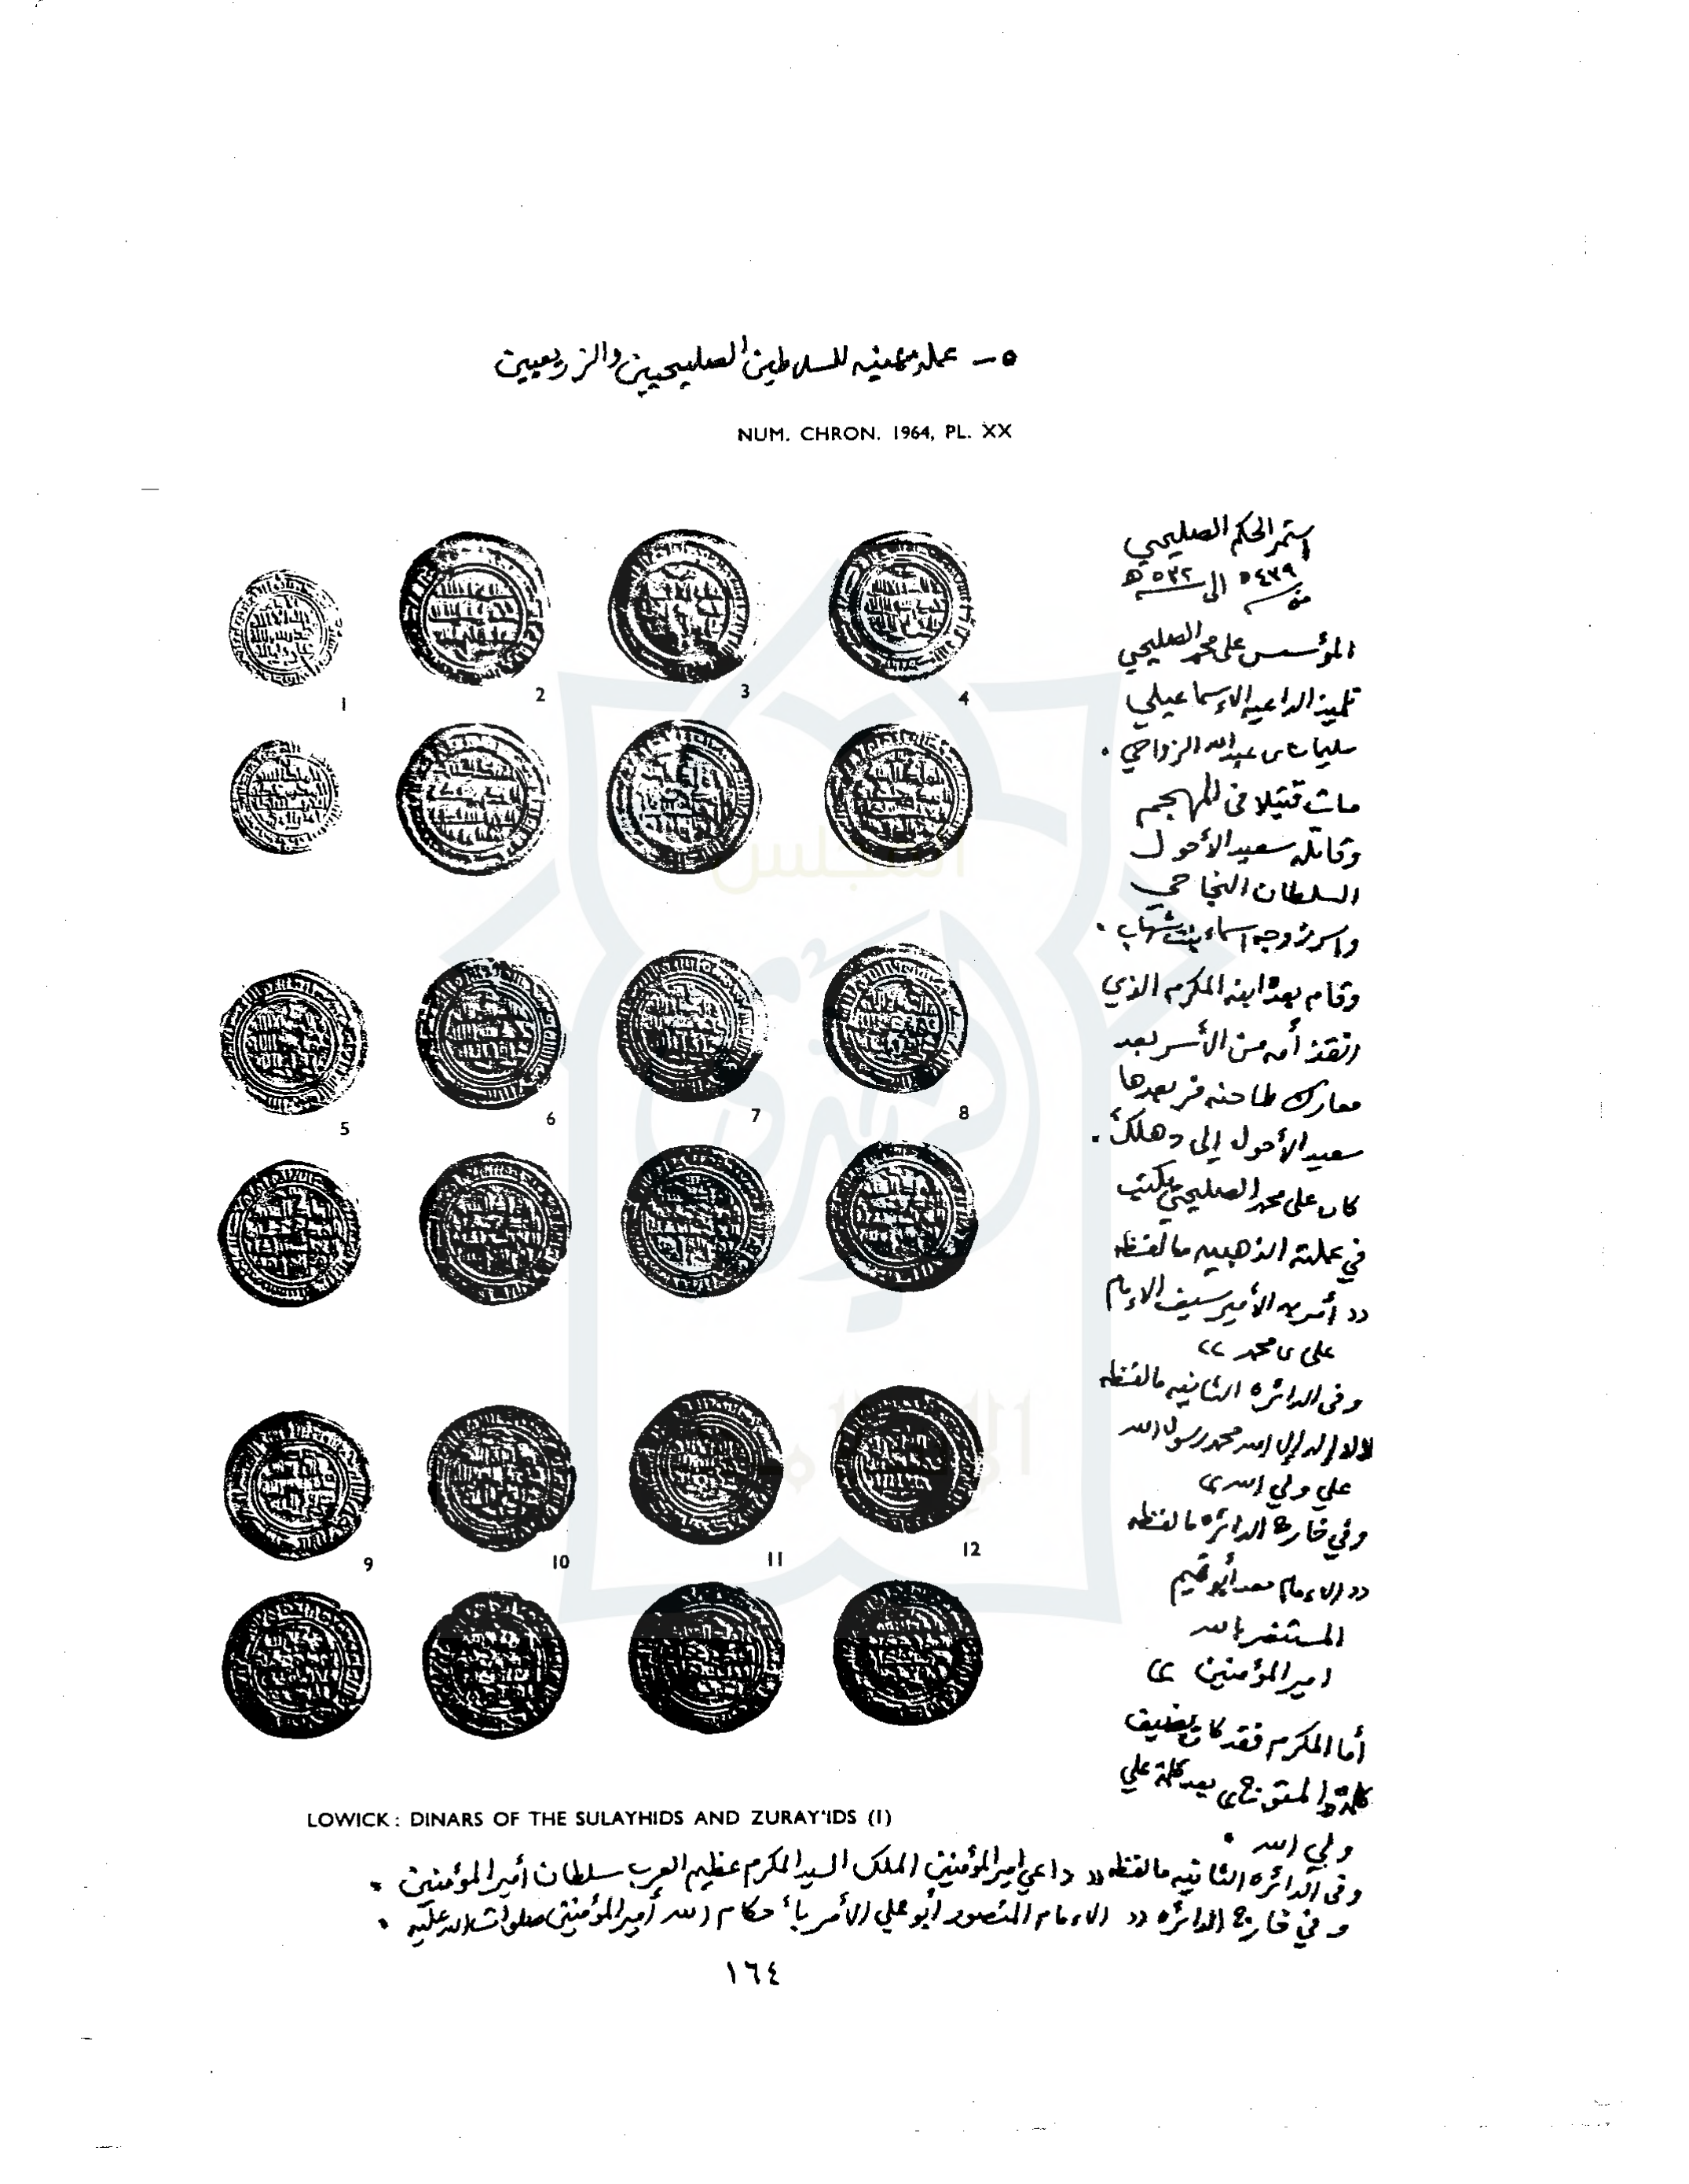 ٥ - عمله يمنيه للسلاطين الصليحيين والزريعيين
NUM. CHRON. 1964, PL. XX
إستمر الحكم الصليحي
من سـ ٤٣٩ هـ الى سـ ٥٣٢ هـ
المؤسس علي محمد الصليحي
تلميذ الداعيه الإسماعيلي
سليمان بن عبدالله الزواحي .
مات قتيلا في المهجم
وقاتله سعيد الأحول
السلطان النجاحي
واسر زوجه اسماء بنت شهاب .
وقام بعده ابنه المكرم الذي
انقذ أمه من الأسر بعد
معارك طاحنه فر بعدها
سعيد الأحول إلى دهلك .
كان علي محمد الصليحي يكتب
في عملته الذهبيه ما لفظه
(( أمر به الأمير سيف الإمام
علي بن محمد ))
وفي الدائره الثانيه ما لفظه
لا اله إلا الله محمد رسول الله
علي ولي الله
وفي خارج الدائره ما لفظه
(( الإمام معد أبو تميم
المستنصر بالله
امير المؤمنين ))
أما المكرم فقد كان يضيف
بعد كلمة علي
ولي الله .
1
2
3
4
5
6
7
8
9
10
11
12
LOWICK: DINARS OF THE SULAYHIDS AND ZURAY'IDS (I)
وفي الدائره الثانيه ما لفظه (( داعي امير المؤمنين الملك السيد المكرم عظيم العرب سلطان أمير المؤمنين .
وفي خارج الدائره (( الإمام المنصور أبو علي الأمر بأحكام الله أمير المؤمنين صلوات الله عليه .
١٦٤